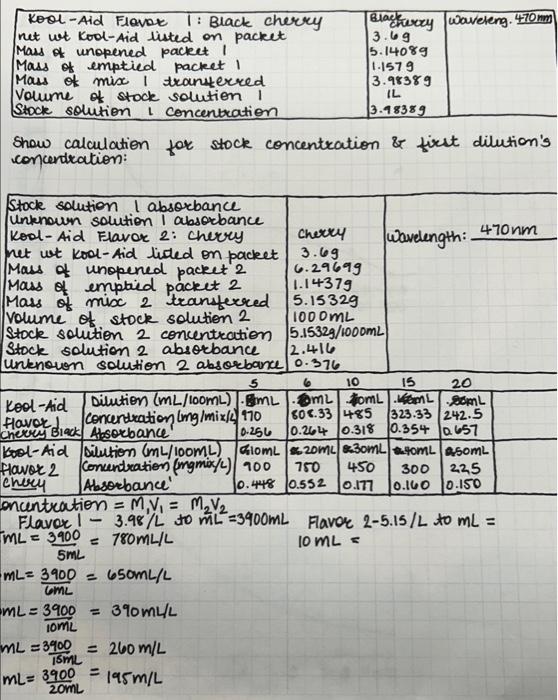 Kool-Aid Flavor 1: Black cherry Black cherry Waveleng. 470 nm
net wt Kool-Aid listed on packet 3.6g
Mass of unopened packet 1 5.1408g
Mass of emptied packet 1 1.157g
Mass of mix 1 transferred 3.9838g
Volume of stock solution 1 1L
Stock solution 1 concentration 3.9838g
Show calculation for stock concentration & first dilution's
concentration:
Stock solution 1 absorbance
Unknown solution 1 absorbance
Kool-Aid Flavor 2: cherry cherry Wavelength: 470nm
net wt Kool-Aid listed on packet 3.6g
Mass of unopened packet 2 6.2969g
Mass of emptied packet 2 1.1437g
Mass of mix 2 transferred 5.1532g
Volume of stock solution 2 1000mL
Stock solution 2 concentration 5.1532g/1000mL
Stock solution 2 absorbance 2.416
Unknown solution 2 absorbance 0.376
5 6 10 15 20
Kool-Aid Flavor 1 Cherry Black
Dilution (mL/100mL)
Concentration (mg/mix/L) 970 808.33 485 323.33 242.5
Absorbance 0.256 0.264 0.318 0.354 0.657
Kool-Aid Flavor 2 Chery
Dilution (mL/100mL) 10mL 20mL 30mL 40mL 50mL
Concentration (mgmix/L) 900 750 450 300 225
Absorbance 0.448 0.552 0.177 0.160 0.150
oncentration = M₁V₁ = M₂V₂
Flavor 1 - 3.98/L to mL = 3900mL Flavor 2-5.15/L to mL =
mL = 3900/5mL = 780mL/L 10 mL =
mL = 3900/6mL = 650mL/L
mL = 3900/10mL = 390mL/L
mL = 3900/15mL = 260 m/L
mL = 3900/20mL = 195m/L